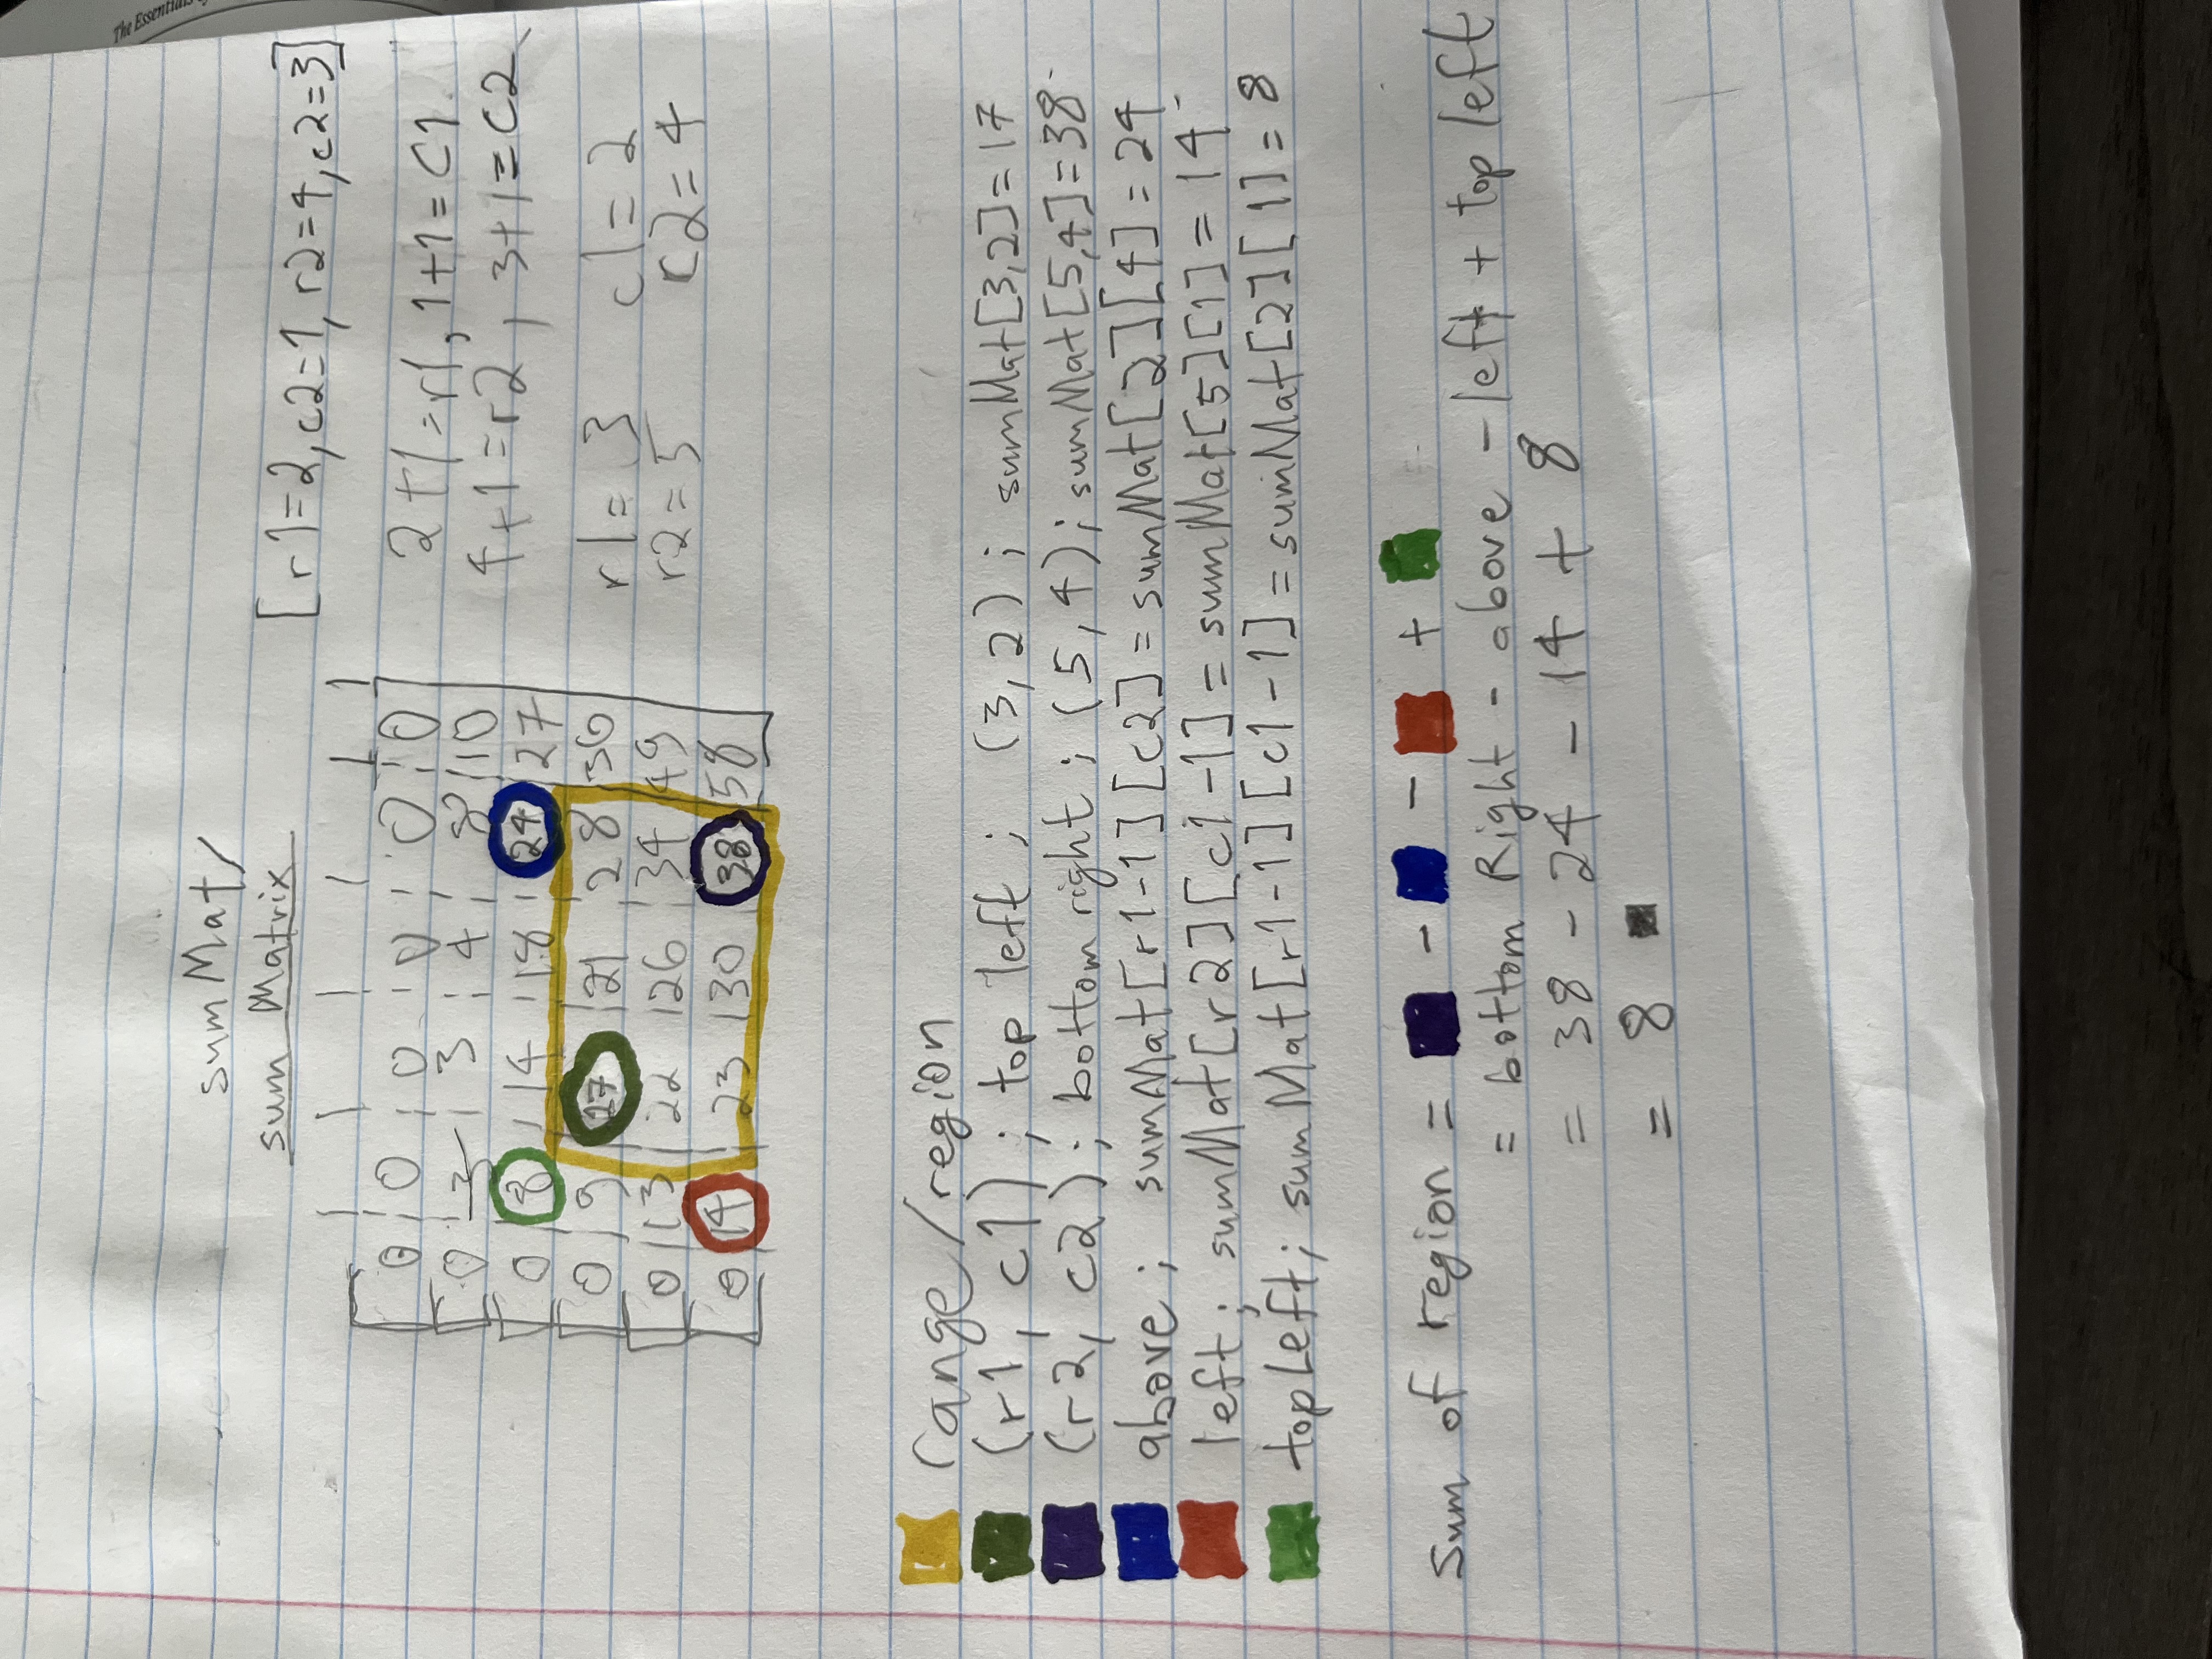 The Essentials
sumMat/
sum Matrix
[r1=2, c2=1, r2=4, c2=3]
0 | 0 | 0 | 0 | 0 | 0
0 | 3 | 3 | 4 | 8 | 10
0 | 8 | 14 | 18 | 24 | 27
0 | 9 | 17 | 21 | 28 | 36
0 | 13 | 22 | 26 | 34 | 49
0 | 14 | 23 | 30 | 38 | 58
2+1=r1, 1+1=C1
4+1=r2, 3+1=C2
r1= 3 c1= 2
r2= 5 c2= 4
range/region
(r1, c1); top left; (3,2); sumMat[3,2]=17
(r2, c2); bottom right; (5,4); sumMat[5,4]=38
above; sumMat[r1-1][c2]=sumMat[2][4]=24
left; sumMat[r2][c1-1]=sumMat[5][1]=14
topLeft; sumMat[r1-1][c1-1]=sumMat[2][1]=8
Sum of region = - - +
= bottom Right - above - left + top left
= 38 - 24 - 14 + 8
= 8 ■